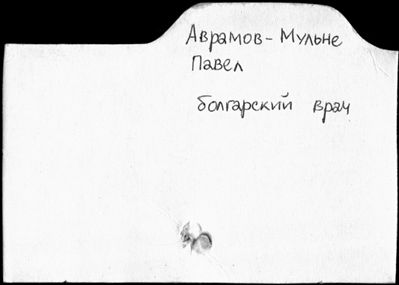 Аврамов-Мульне
Павел
болгарский врач